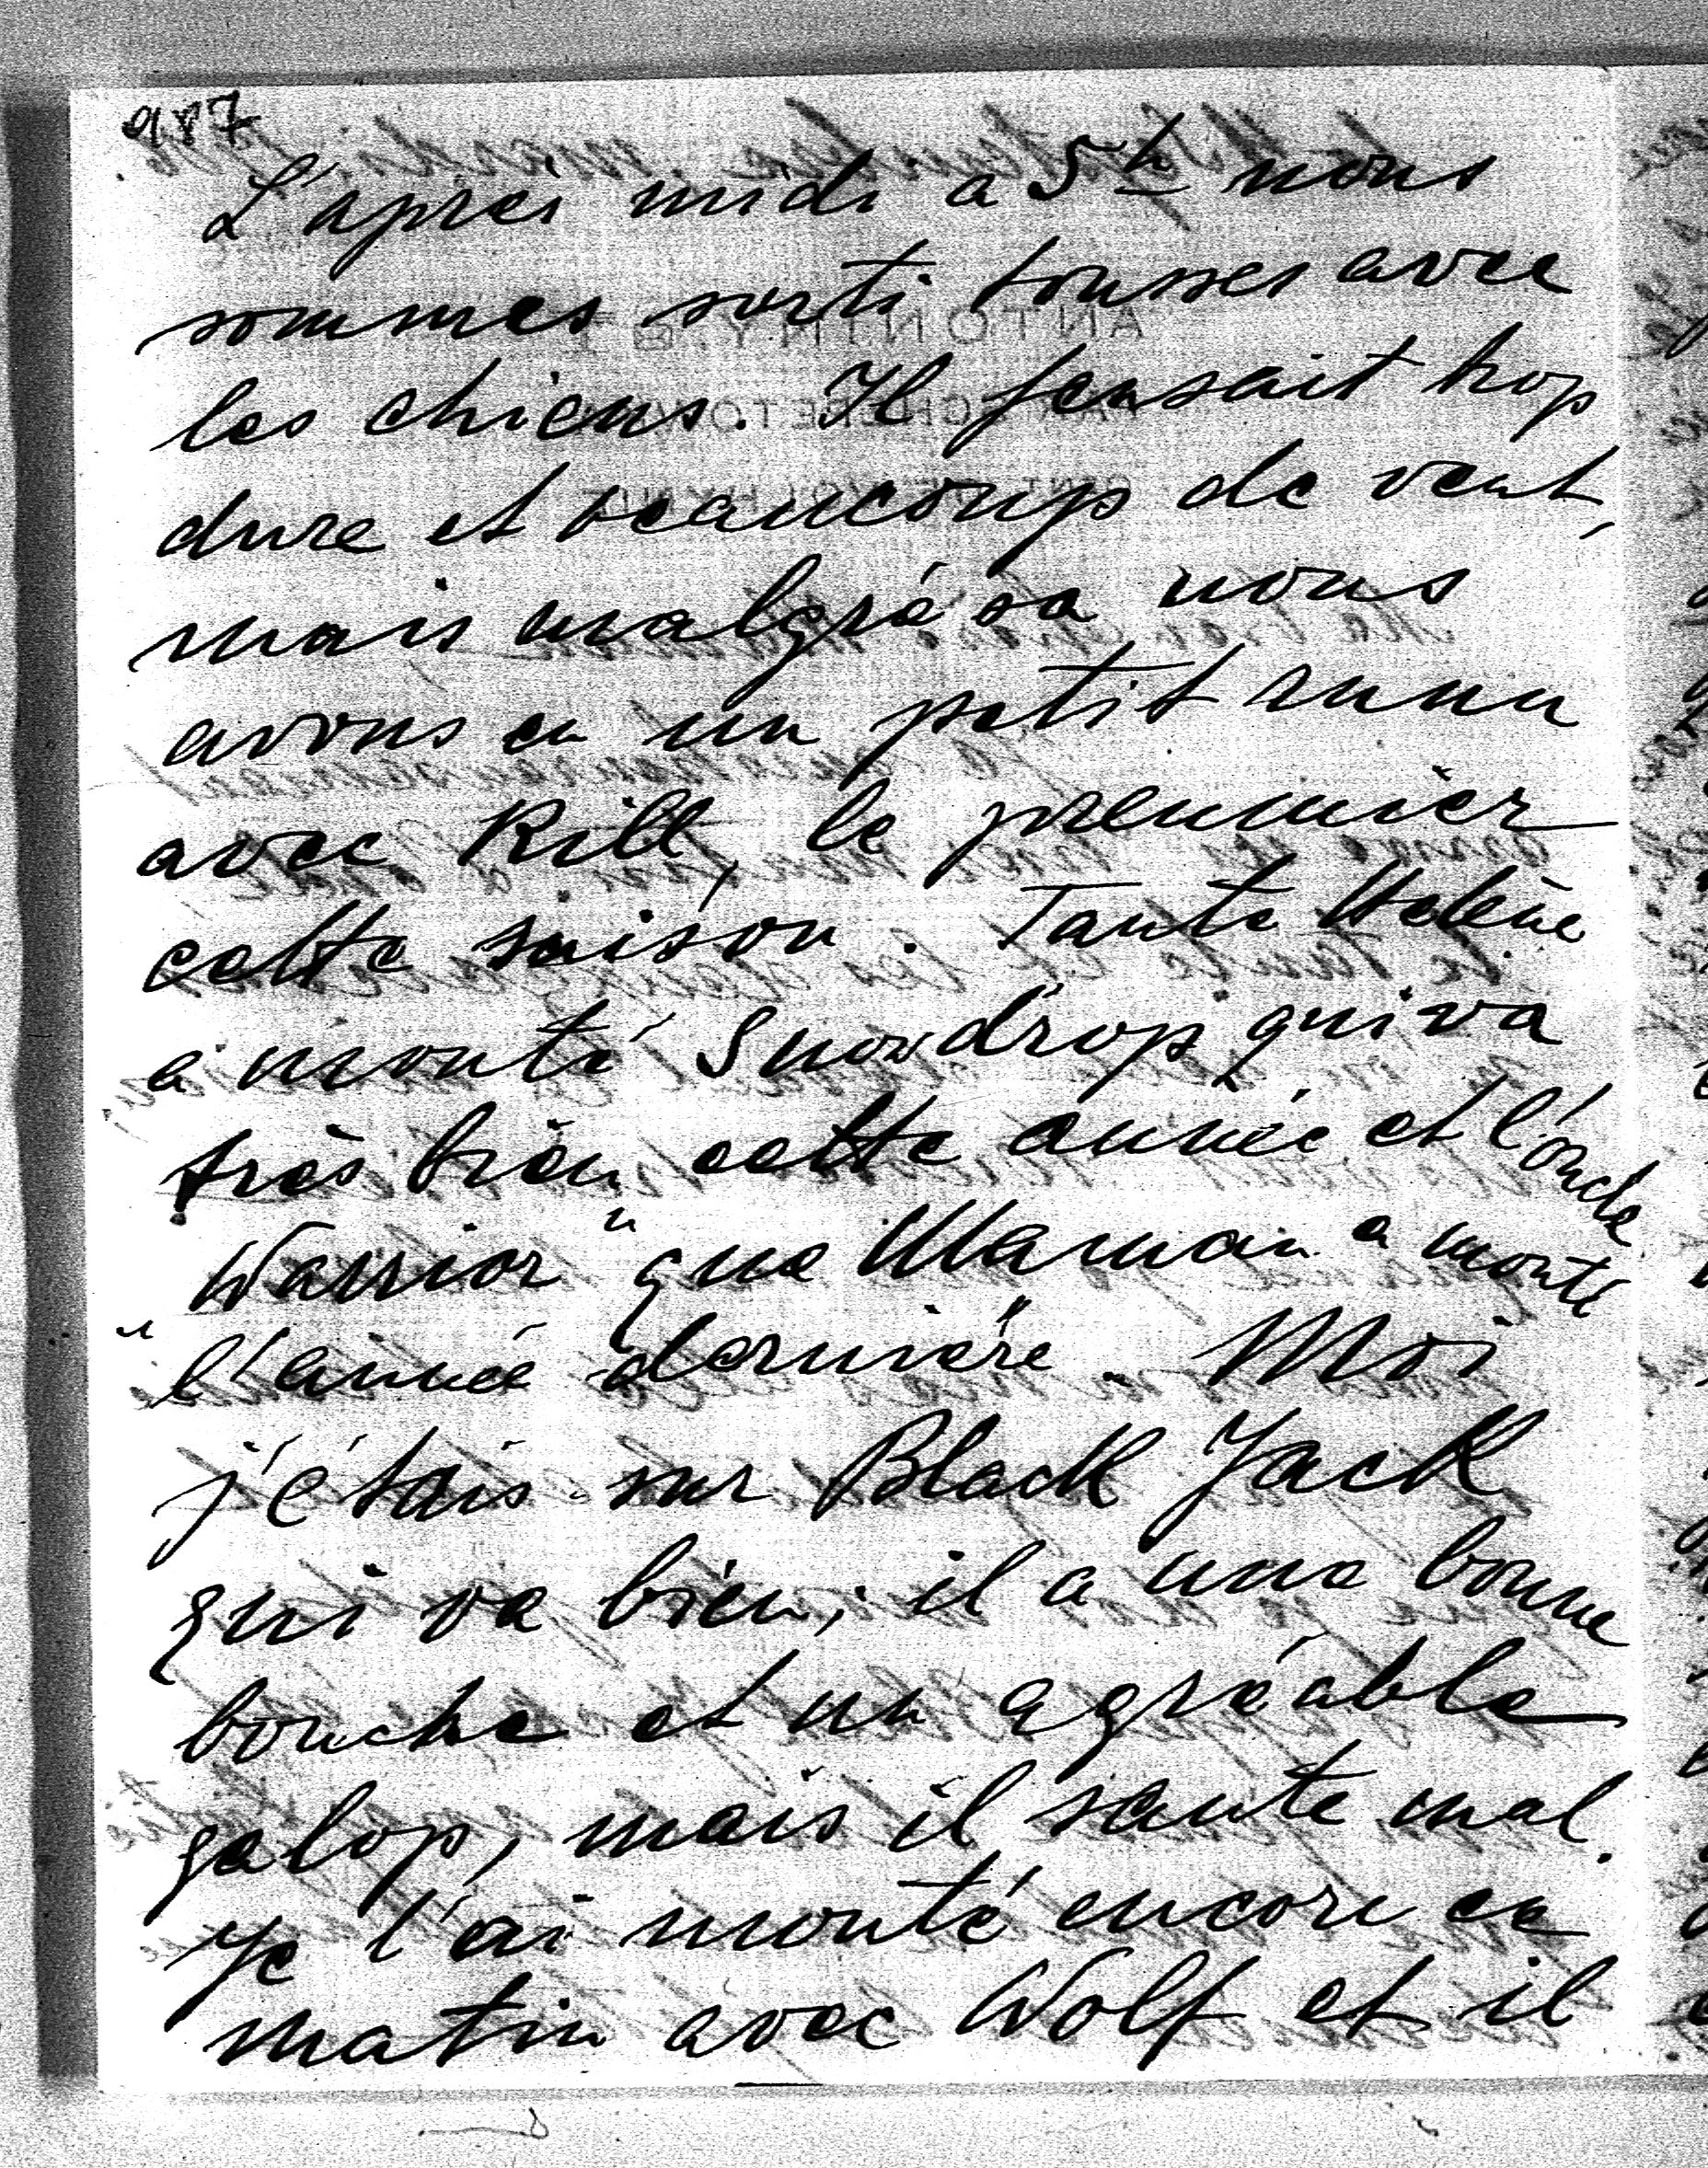 987
L'aprei midi a 5h nous
sommes sorti tousses avec
les chiens. Il fensait trop
dure et beaucoup de vent,
mais malgré sa nous
avons eu un petit runn
avec Kill, le premmier
cette saison. Tante Helène
a monté Snowdrop qui va
très bien cette année et l'oncle
"Warrior" que Maman a monté
l'année dernière. Moi
j'étais sur Black Jack
qui va bien; il a une bonne
bouche et un agréable
galop, mais il saute mal.
Je l'ai monté encore ce
matin avec Wolf et il